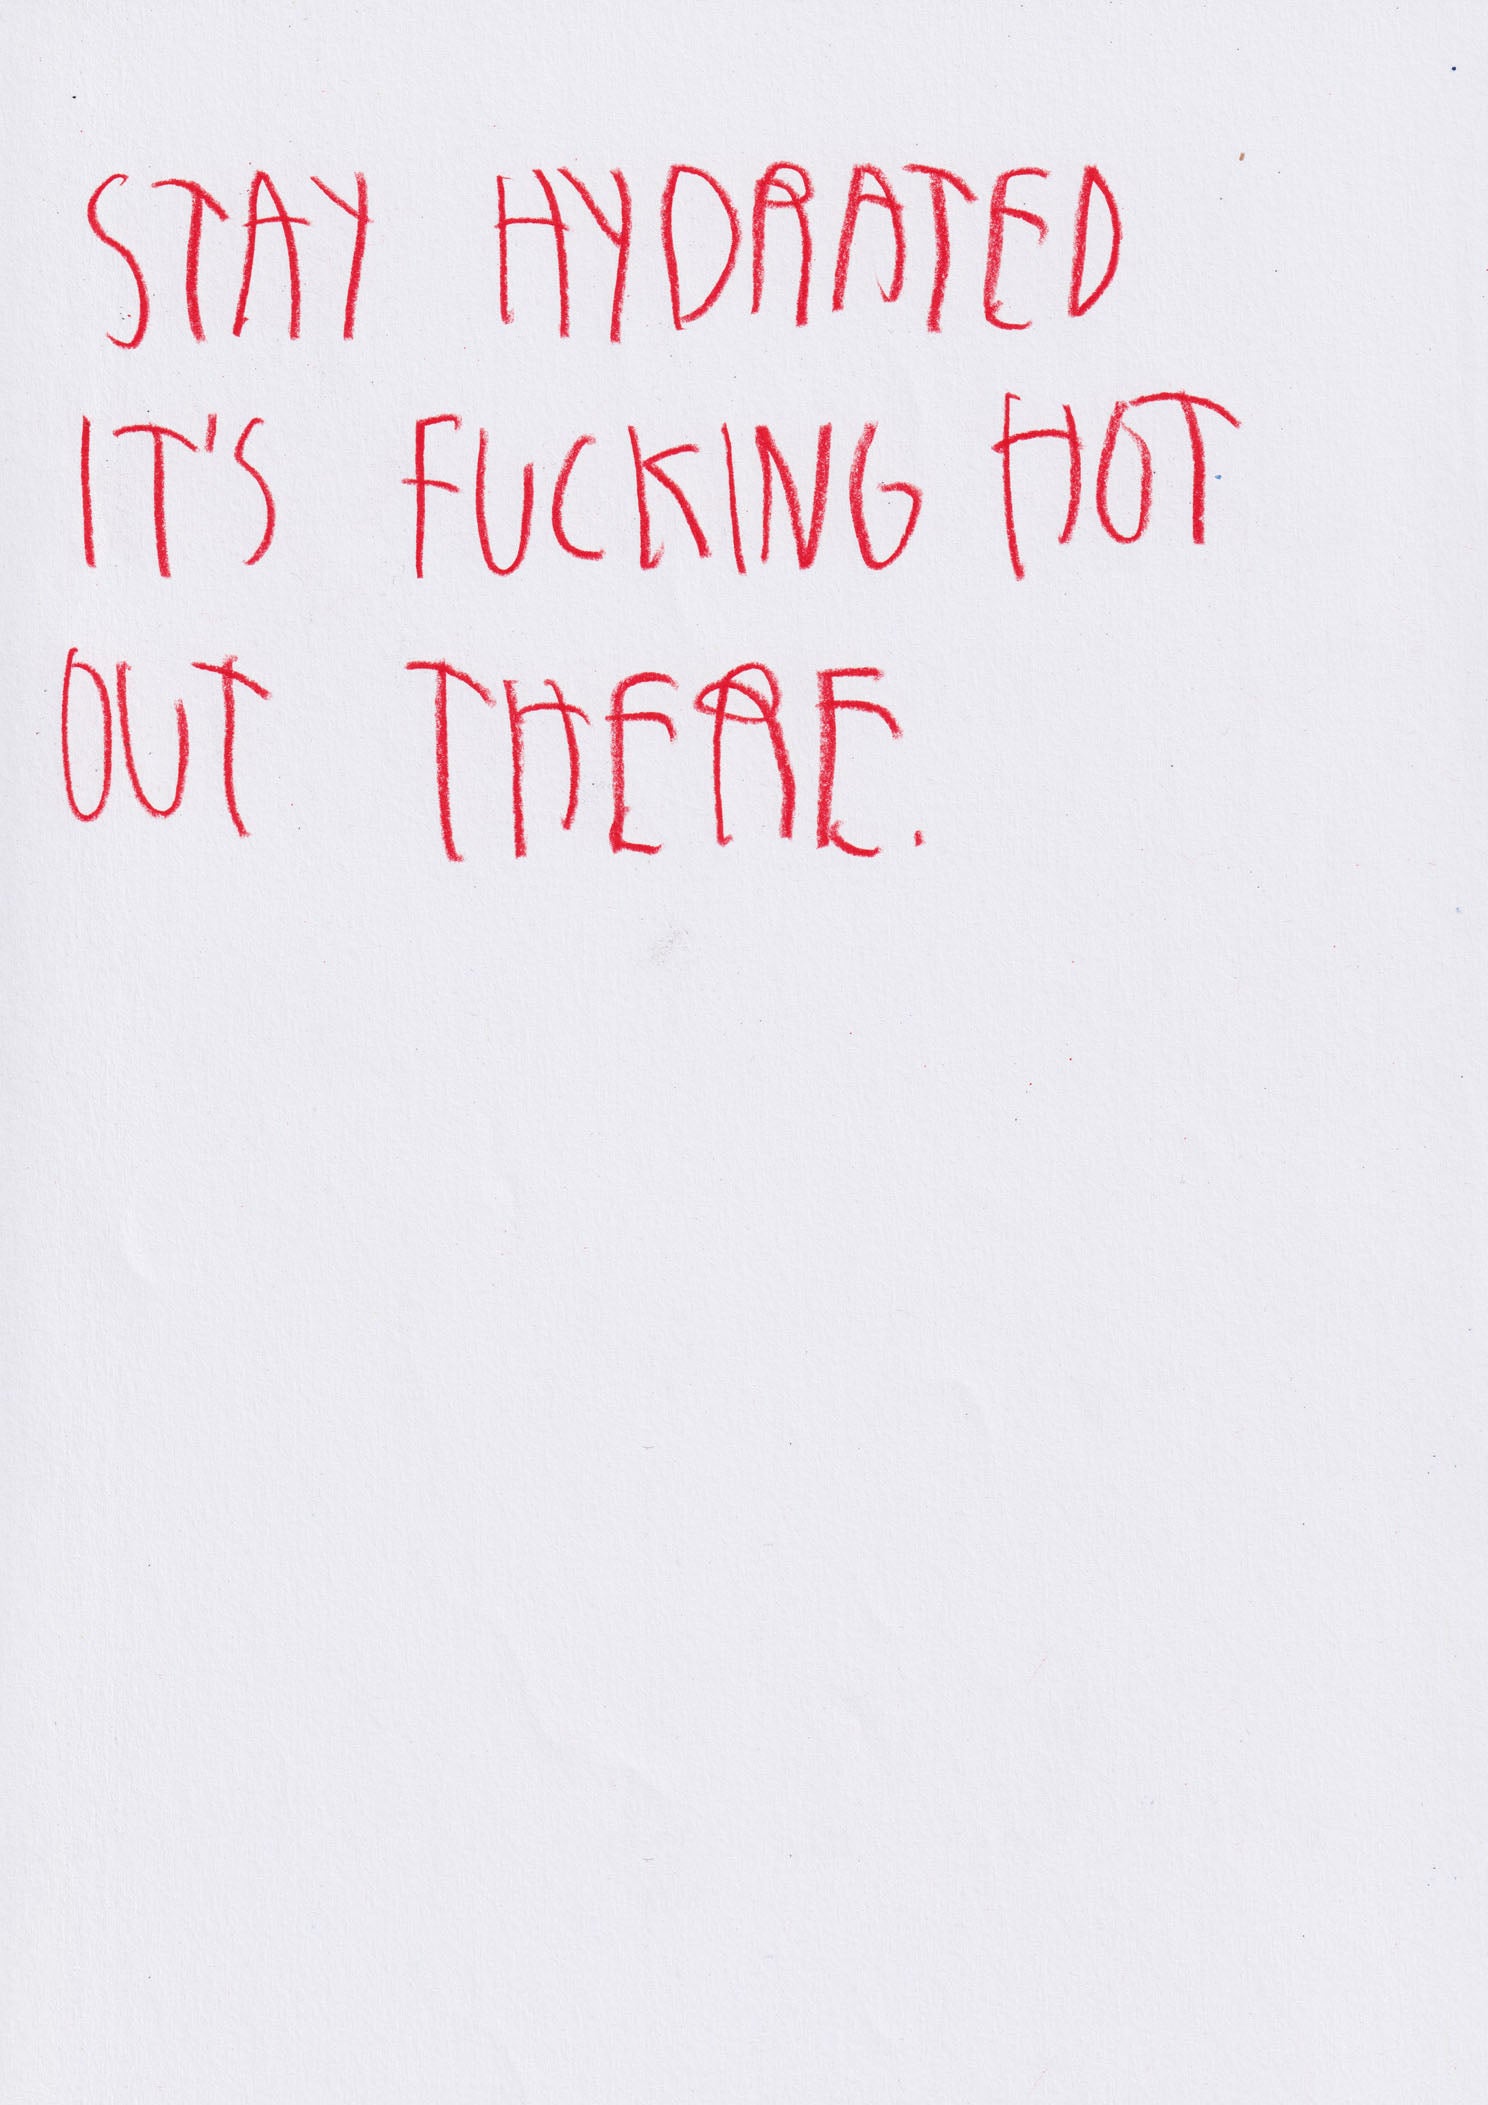 STAY HYDRATED
IT'S FUCKING HOT
OUT THERE.